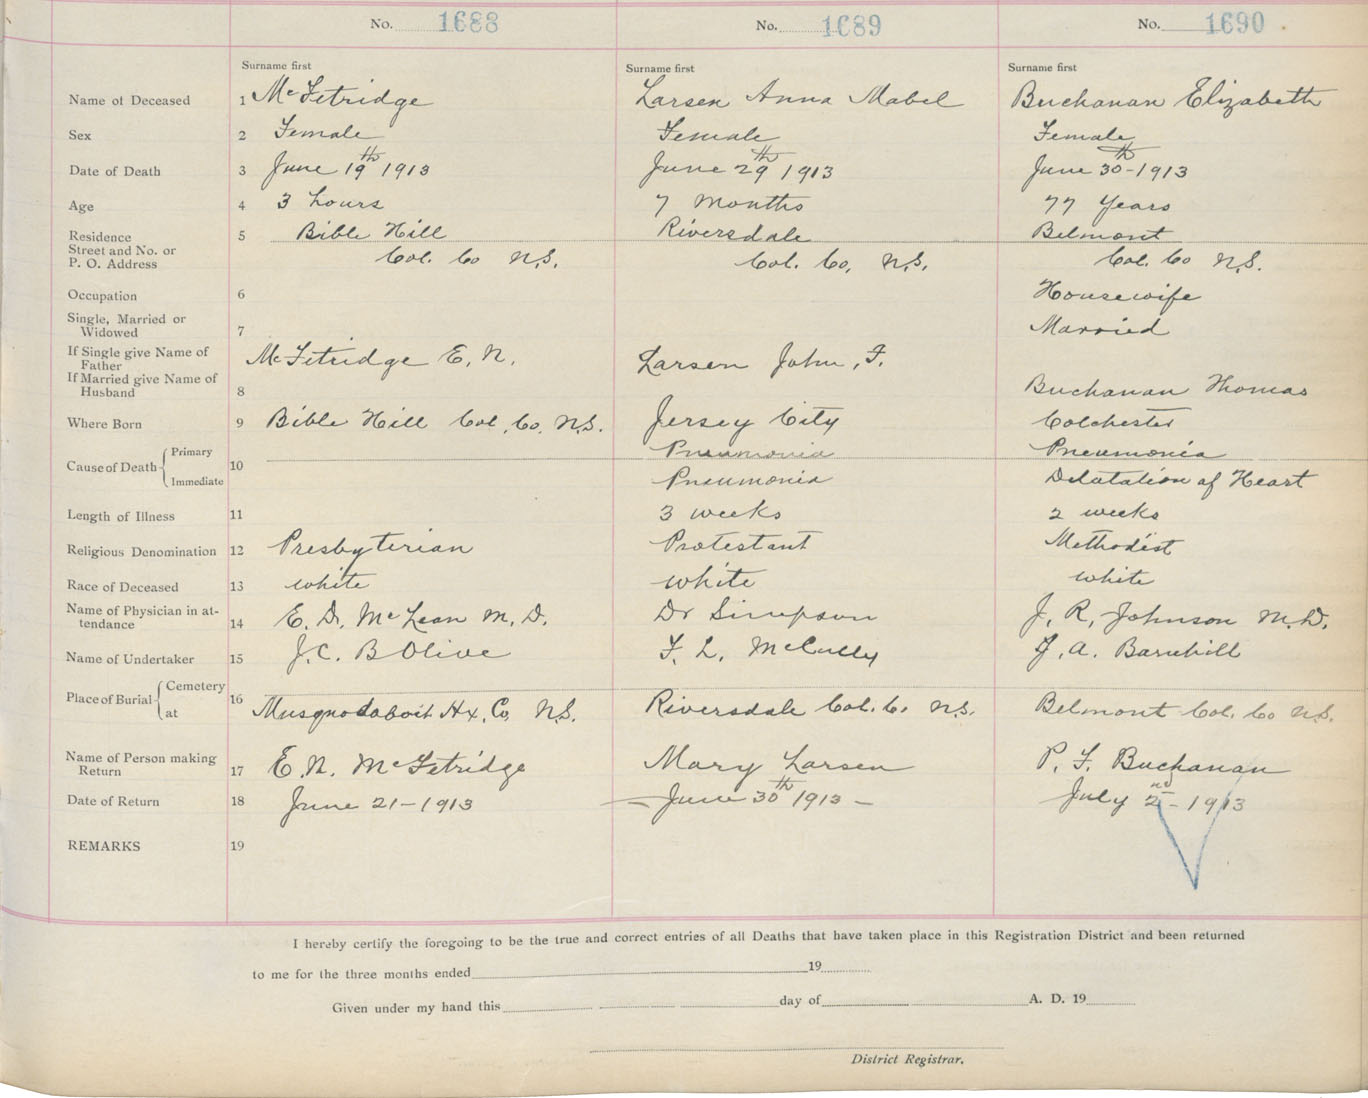 No. 1688 No. 1689 No. 1690
Surname first Surname first Surname first
Name of Deceased 1 McFetridge Larsen Anna Mabel Buchanan Elizabeth
Sex 2 Female Female Female
Date of Death 3 June 19th 1913 June 29th 1913 June 30th-1913
Age 4 3 hours 7 months 77 years
Residence 5 Bible Hill Riversdale Belmont
Street and No. or
P. O. Address Col. Co N.S. Col. Co. N.S. Col. Co N.S.
Occupation 6 Housewife
Single, Married or
Widowed 7 Married
If Single give Name of
Father McFetridge E. N. Larsen John, F.
If Married give Name of
Husband 8 Buchanan Thomas
Where Born 9 Bible Hill Col. Co. N.S. Jersey City Colchester
Cause of Death Primary 10 Pneumonia Pneumonia
Immediate Pneumonia Dilatation of Heart
Length of Illness 11 3 weeks 2 weeks
Religious Denomination 12 Presbyterian Protestant Methodist
Race of Deceased 13 white white white
Name of Physician in at-
tendance 14 E. D. McLean M. D. Dr Simpson J. R. Johnson M.D.
Name of Undertaker 15 J. C. B Olive F. L. McCully J. A. Barnhill
Place of Burial Cemetery 16
at Musquodoboit Hx. Co, N.S. Riversdale Col. Co. N.S. Belmont Col. Co N.S.
Name of Person making
Return 17 E. N. McFetridge Mary Larsen P. F. Buchanan
Date of Return 18 June 21-1913 – June 30th 1913 – July 2nd-1913
REMARKS 19
I hereby certify the foregoing to be the true and correct entries of all Deaths that have taken place in this Registration District and been returned
to me for the three months ended 19
Given under my hand this day of A. D. 19
District Registrar.